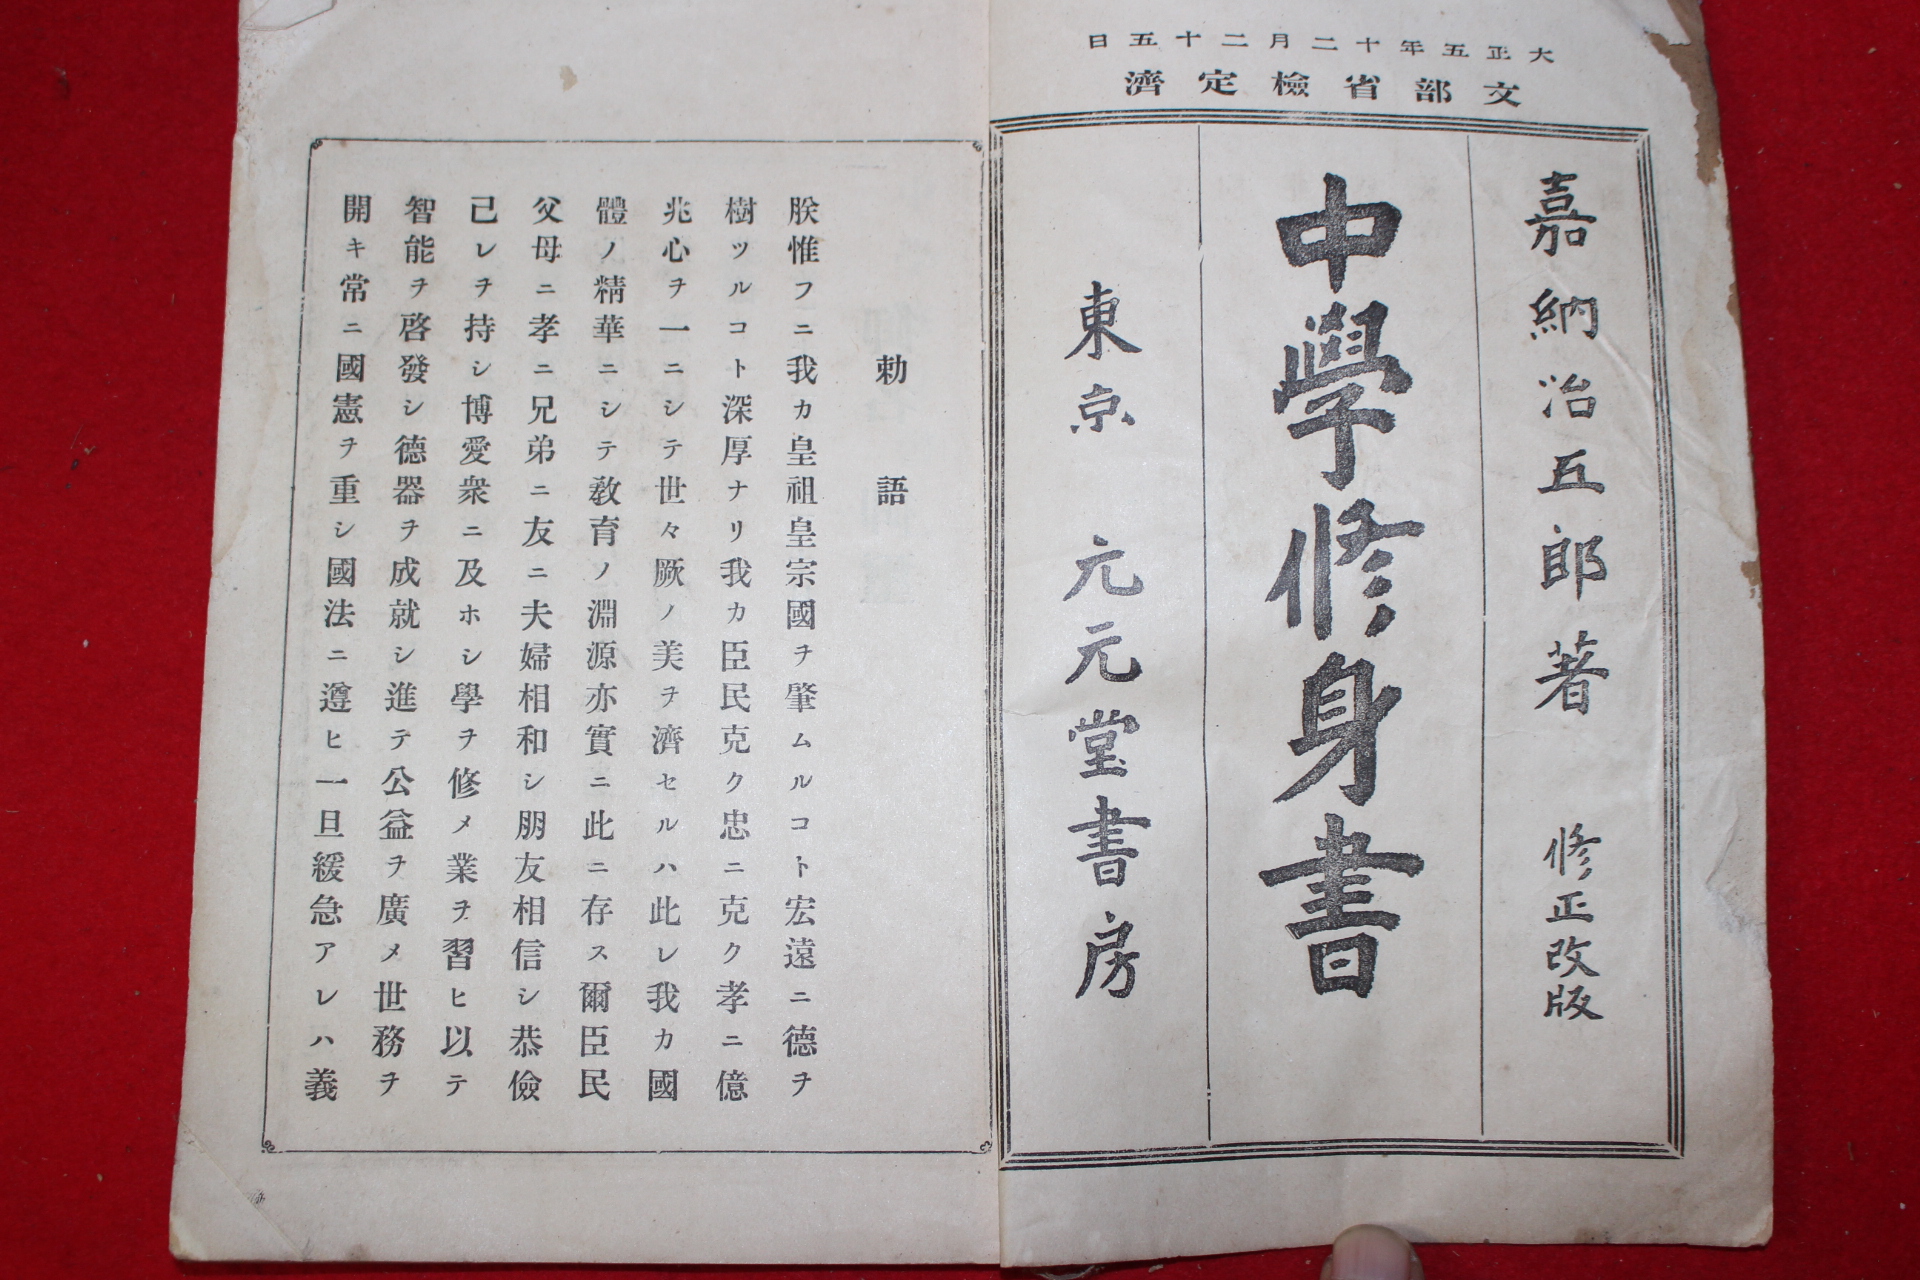 大正五年十二月二十五日
文部省檢定濟
嘉納治五郎著 修正改版
中學修身書
東京 元元堂書房
勅語
朕惟フニ我カ皇祖皇宗國ヲ肇ムルコト宏遠ニ德ヲ
樹ツルコト深厚ナリ我カ臣民克ク忠ニ克ク孝ニ億
兆心ヲ一ニシテ世々厥ノ美ヲ濟セルハ此レ我カ國
體ノ精華ニシテ教育ノ淵源亦實ニ此ニ存ス爾臣民
父母ニ孝ニ兄弟ニ友ニ夫婦相和シ朋友相信シ恭儉
己レヲ持シ博愛衆ニ及ホシ學ヲ修メ業ヲ習ヒ以テ
智能ヲ啓發シ德器ヲ成就シ進テ公益ヲ廣メ世務ヲ
開キ常ニ國憲ヲ重シ國法ニ遵ヒ一旦緩急アレハ義